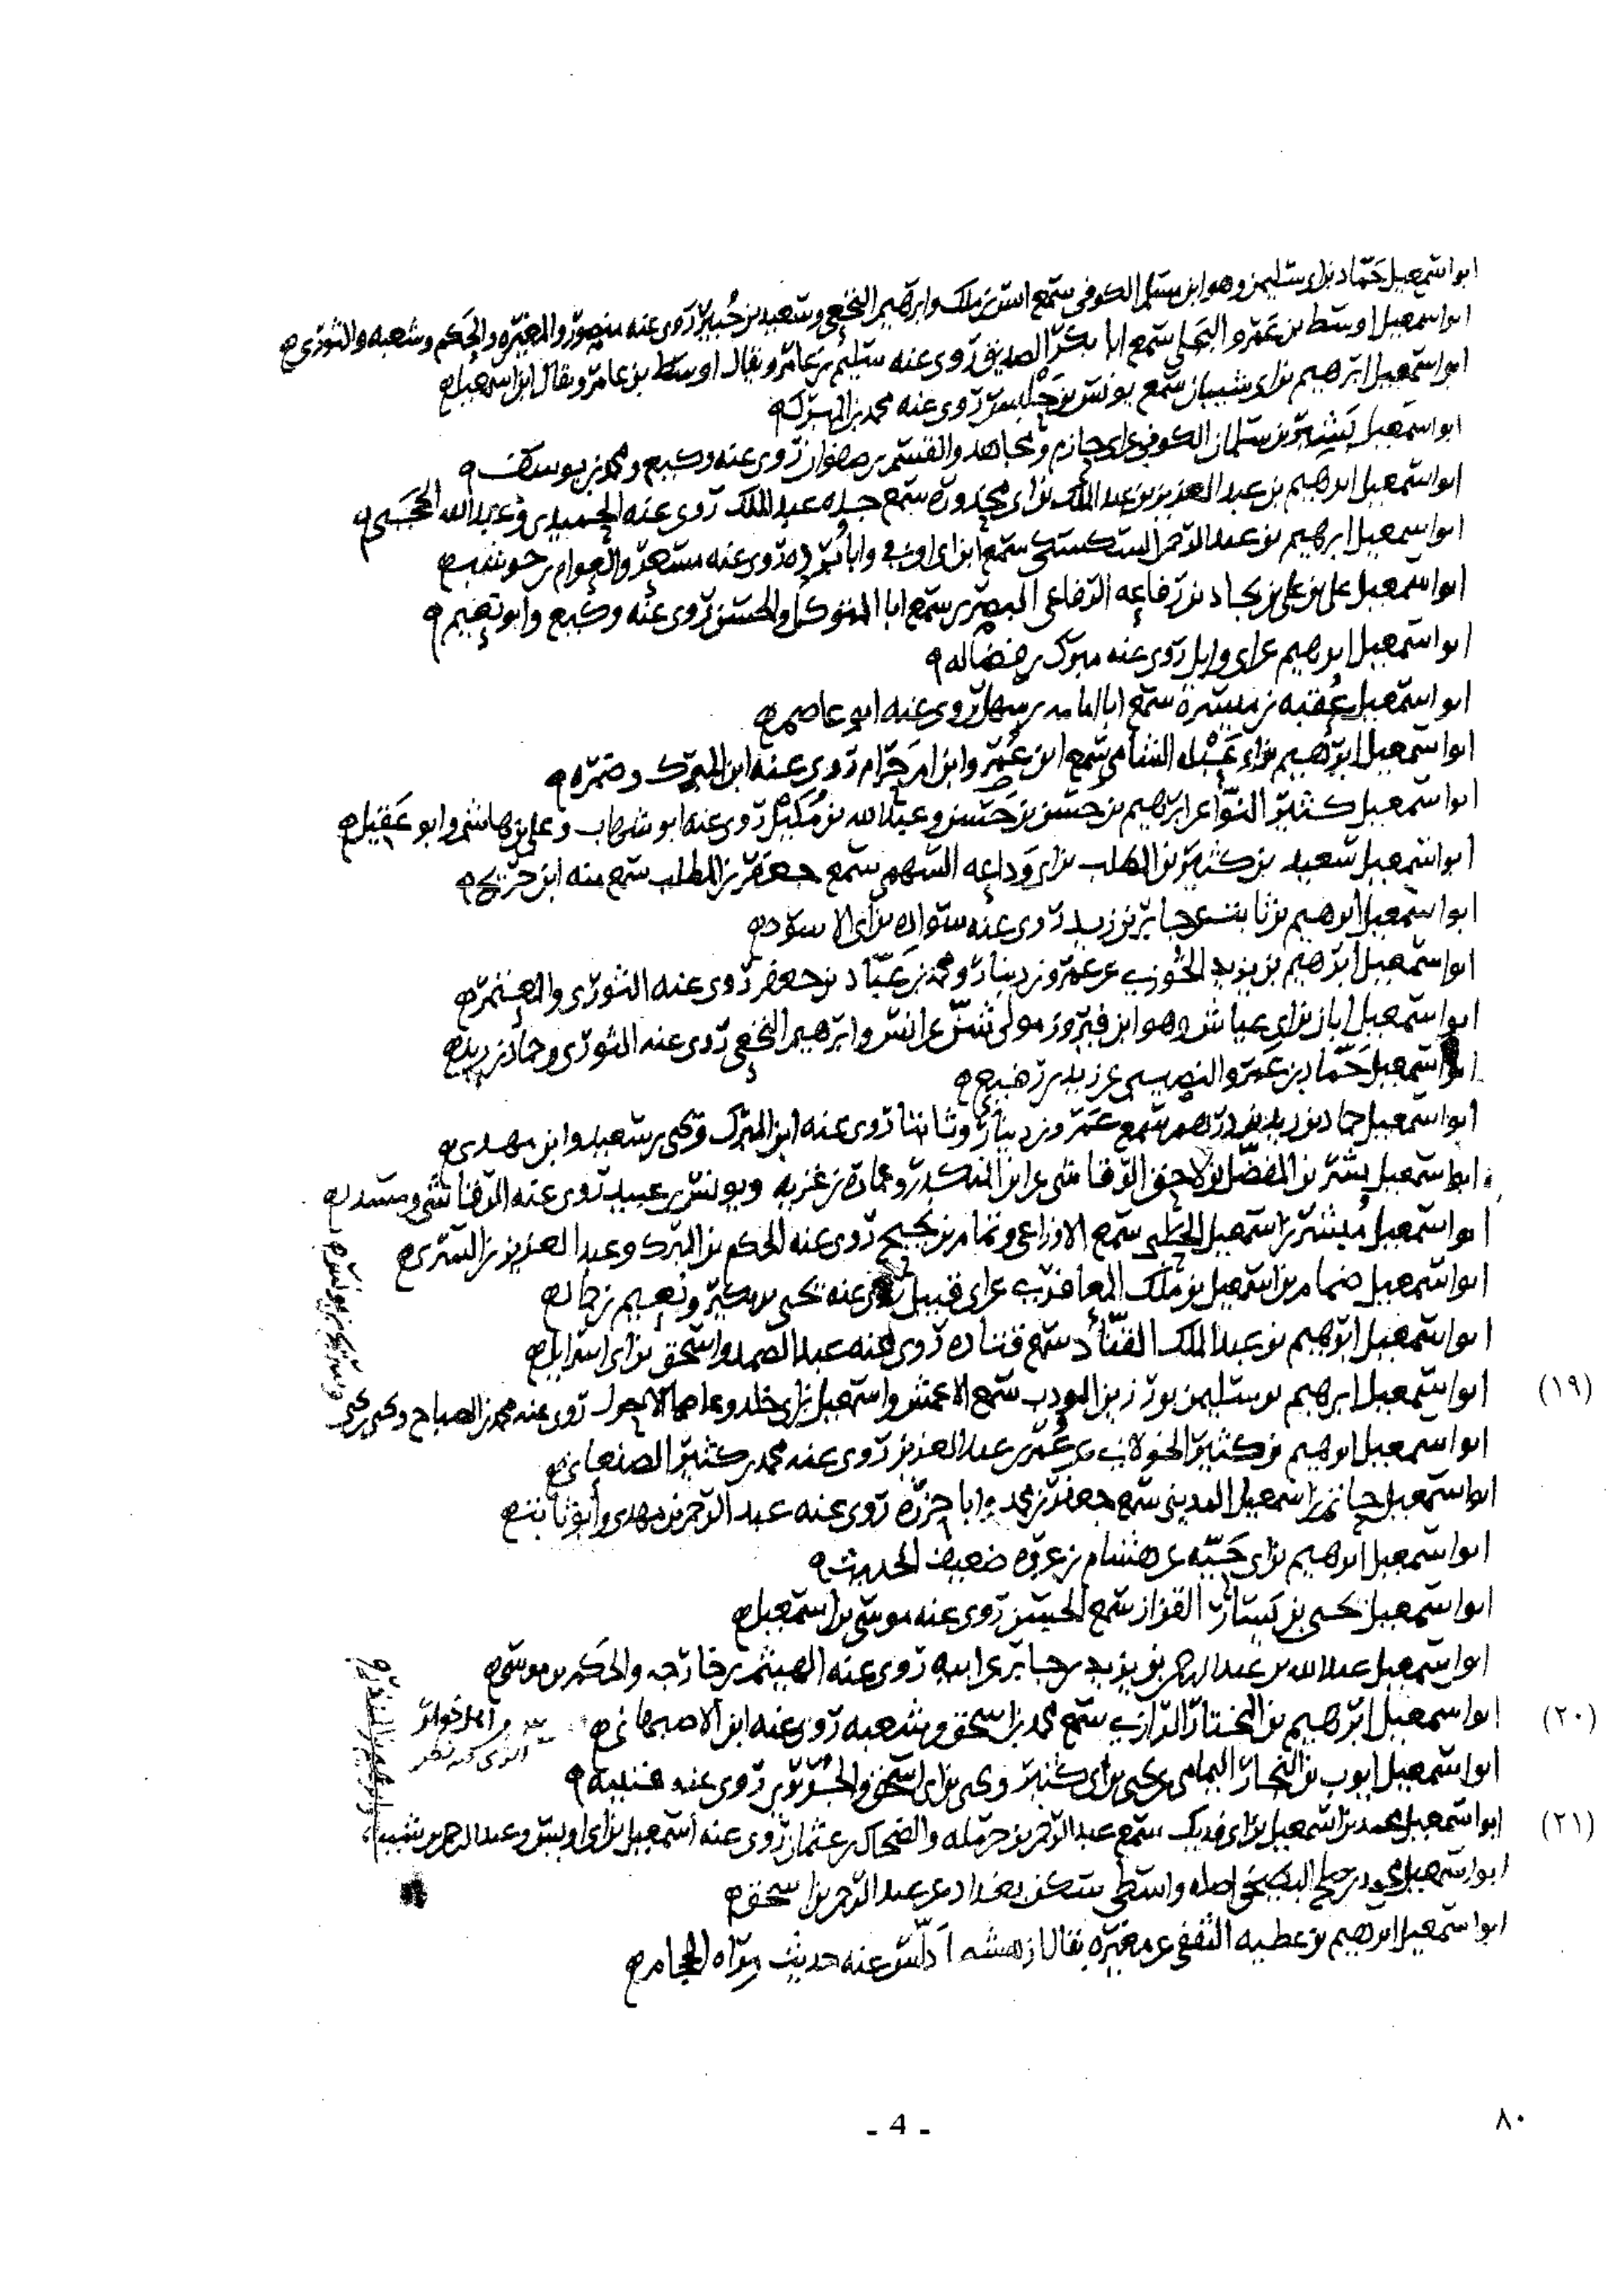 ابو اسمعيل حماد بن ابي سليمن وهو ابن مسلم الكوفي سمع انس بن ملك وابرهيم النخعي وسعيد بن جبير روى عنه منصور والمغيره والحكم وشعبه والثوري
ابو اسمعيل اوسط بن عمرو البجلي سمع ابا بكر الصديق روى عنه سليم بن عامر ويقال اوسط بن عامر ويقال ابن اسمعيل
ابو اسمعيل ابرهيم بن ابي شيبان سمع يونس بن حلبس روى عنه محمد بن المبرك
ابو اسمعيل بشير بن سلمان الكوفي عن ابي حازم ومجاهد والقسم بن صفوان روى عنه وكيع ومحمد بن يوسف
ابو اسمعيل ابرهيم بن عبد العزيز بن عبد الملك بن ابي محذورة سمع جده عبد الملك روى عنه الحميدي وعبد الله الحجبي
ابو اسمعيل ابرهيم بن عبد الرحمن السكسكي سمع ابن ابي اوفى وابا برده روى عنه مسعر والعوام بن حوشب
ابو اسمعيل علي بن علي بن بجاد بن رفاعه الرفاعي البصري سمع ابا المتوكل والحسن روى عنه وكيع وابو نعيم
ابو اسمعيل ابرهيم عن ابي وايل روى عنه مبرك بن فضاله
ابو اسمعيل عقبه بن ميسرة سمع ابا امامه بن سهل روى عنه ابو عاصم
ابو اسمعيل ابرهيم بن ابي عبله الشامي سمع ابن عمر وابن ام حرام روى عنه ابن المبرك وضمره
ابو اسمعيل كثير النوا عن ابرهيم بن حسن بن حسن وعبد الله بن مليل روى عنه ابو شهاب وعلي بن هاشم وابو عقيل
ابو اسمعيل سعيد بن كثير بن المطلب بن ابي وداعه السهمي سمع جعفر بن المطلب سمع منه ابن جريج
ابو اسمعيل ابرهيم بن ثابت عن جابر بن زيد روى عنه سواده بن ابي الاسود
ابو اسمعيل ابرهيم بن يزيد الخوزي عن عمرو بن دينار ومحمد بن عباد بن جعفر روى عنه الثوري والمعتمر
ابو اسمعيل ابان بن ابي عياش وهو ابن فيروز مولى شن عن انس وابرهيم النخعي روى عنه الثوري وحماد بن زيد
ابو اسمعيل حماد بن عمرو النصيبي عن زيد بن رفيع
ابو اسمعيل حماد بن زيد بن درهم سمع عمرو بن دينار وثابتا روى عنه ابن المبرك ويحيى بن سعيد وابن مهدي
ابو اسمعيل بشر بن المفضل بن لاحق الرقاشي عن ابن المنكدر وعمارة بن غزيه ويونس بن عبيد روى عنه الرقاشي ومسدد
ابو اسمعيل مبشر بن اسمعيل الحلبي سمع الاوزاعي وتمام بن نجيح روى عنه الحكم بن المبرك وعبد العزيز بن السري
ابو اسمعيل ضمام بن اسمعيل بن ملك المعافري عن ابي قبيل روى عنه يحيى بن بكير ونعيم بن حماد
ابو اسمعيل ابرهيم بن عبد الملك القناد سمع قتاده روى عنه عبد الصمد واسحق بن ابي اسرايل
(١٩) ابو اسمعيل ابرهيم بن سليمن بن رزين المودب سمع الاعمش واسمعيل بن ابي خلد وعاصما الاحول روى عنه محمد بن الصباح ويحيى بن يحيى
وسريج بن يونس
ابو اسمعيل ابرهيم بن كثير الخولاني عن عمر بن عبد العزيز روى عنه محمد بن كثير الصنعاني
ابو اسمعيل حاتم بن اسمعيل المديني سمع جعفر بن محمد وابا حزرة روى عنه عبد الرحمن بن مهدي وابو ثابت
ابو اسمعيل ابرهيم بن ابي حيه عن هشام بن عروه ضعيف الحديث
ابو اسمعيل يحيى بن يسار القزاز سمع الحسن روى عنه موسى بن اسمعيل
ابو اسمعيل عبد الله بن عبد الرحمن بن يزيد بن جابر عن ابيه روى عنه الهيثم بن خارجه والحكم بن موسى
(٢٠) ابو اسمعيل ابرهيم بن المختار الرازي سمع محمد بن اسحق وشعبه روى عنه ابن الاصبهاني
ابو اسمعيل ايوب بن النجار اليمامي عن يحيى بن ابي كثير ويحيى بن ابي اسحق والجريري روى عنه قتيبه
(٢١) ابو اسمعيل محمد بن اسمعيل بن ابي فديك سمع عبد الرحمن بن حرمله والضحاك بن عثمان روى عنه اسمعيل بن ابي اويس وعبد الرحمن بن شيبه
وابرهيم بن المنذر
ابو اسمعيل محمد بن صلح البطيخي اصله واسطي سكن بغداد عن عبد الرحمن بن اسحق
ابو اسمعيل ابرهيم بن عطيه الثقفي عن مغيره يقال ان هشيما دلس عنه حديث
- 4 -
٨٠